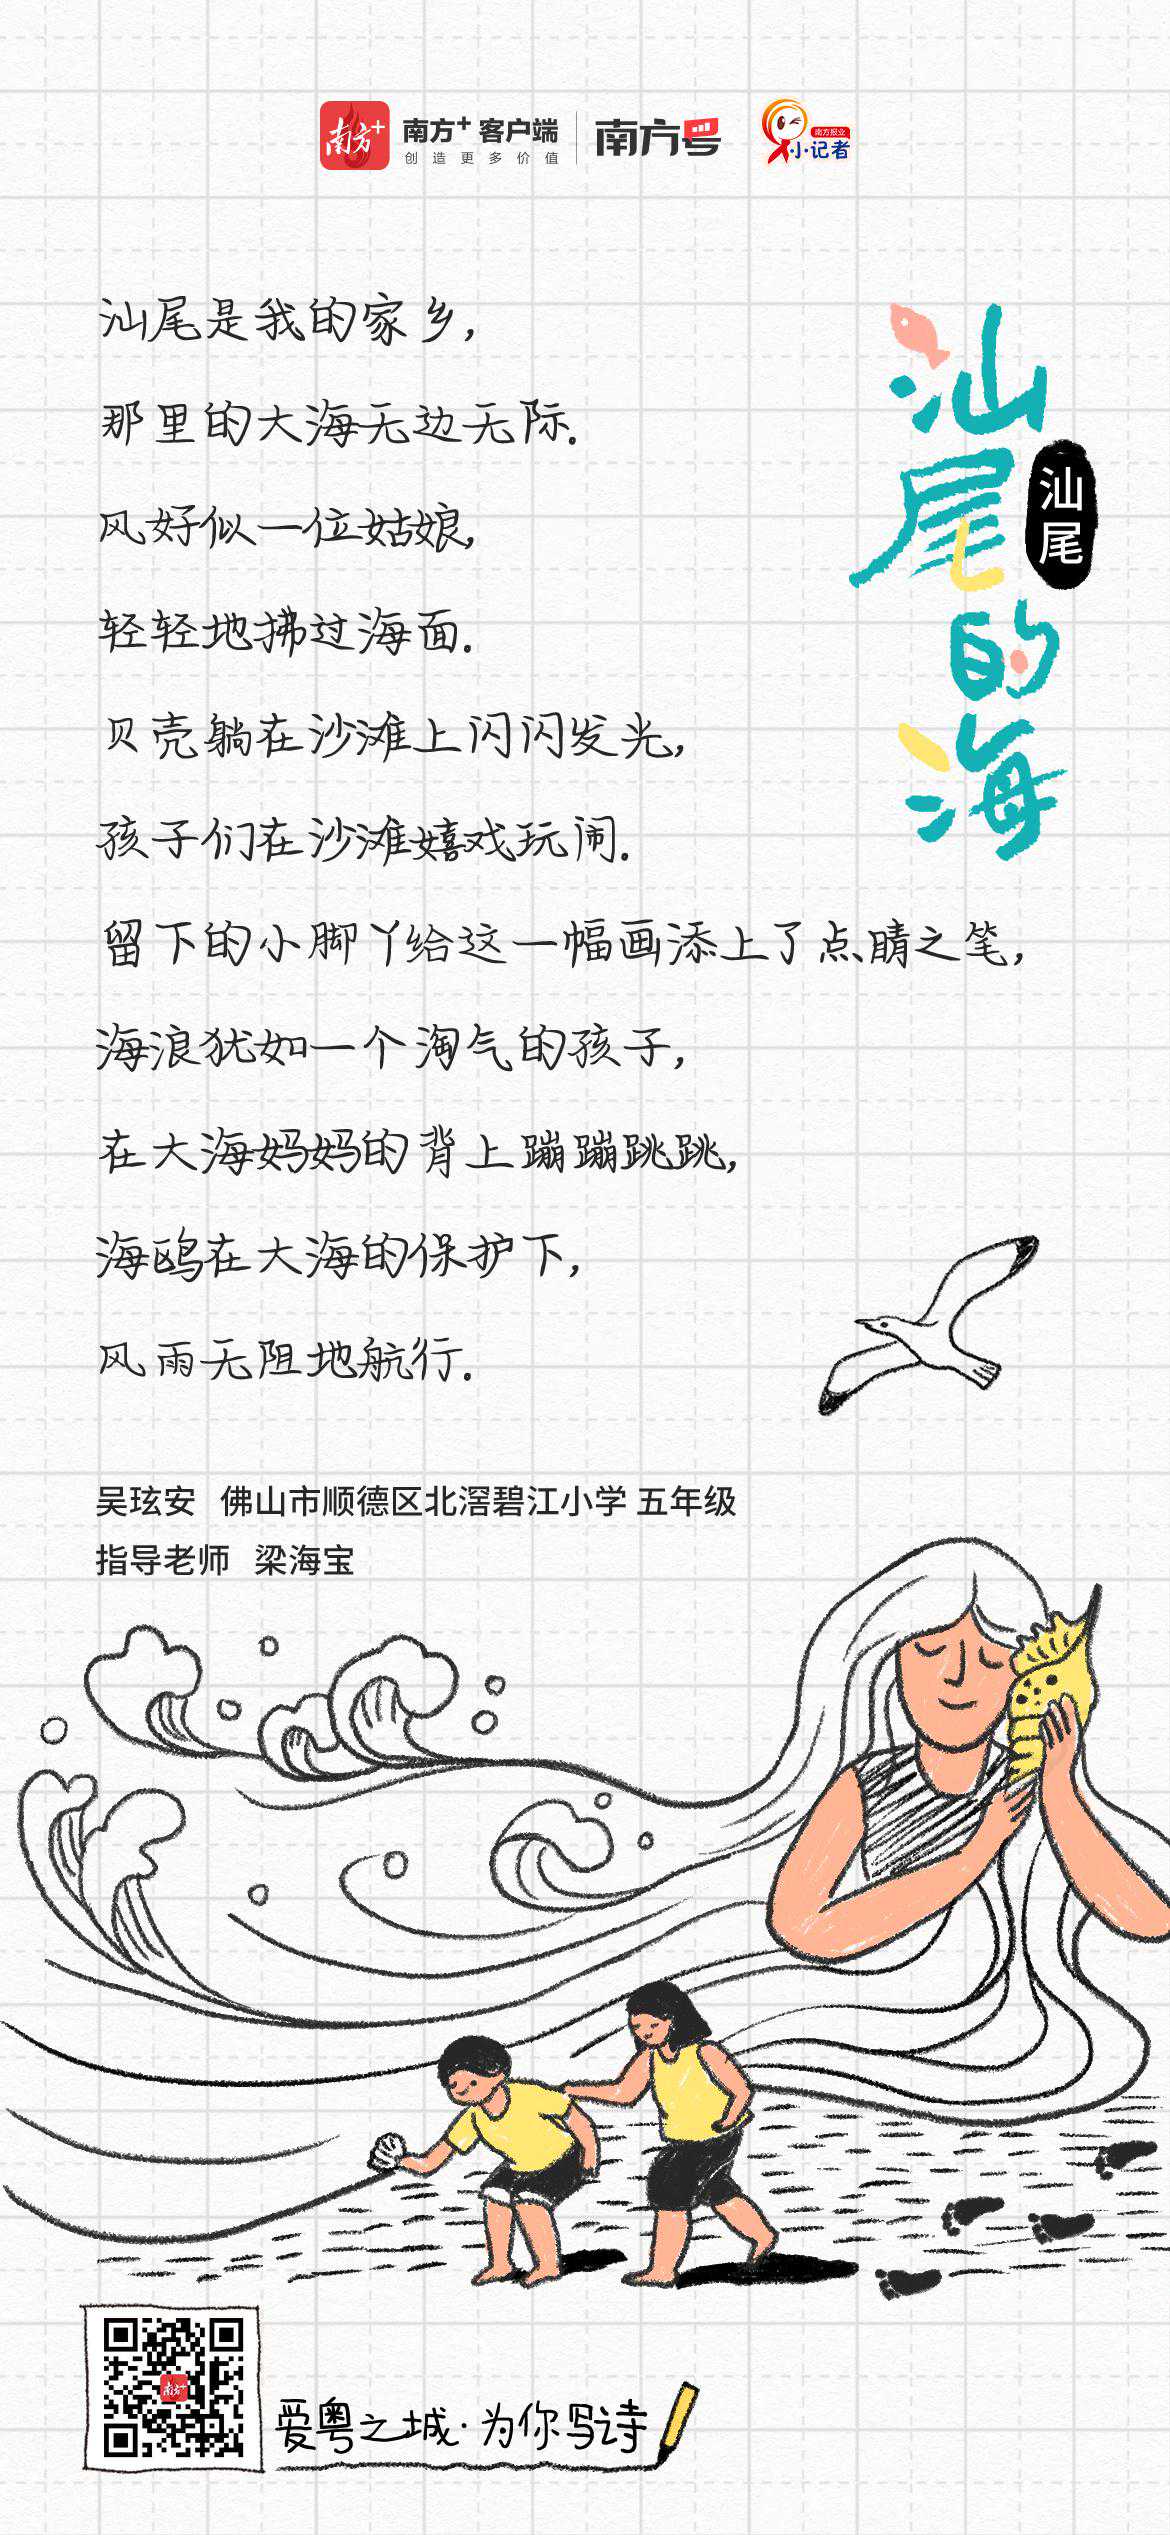 南方+
南方+ 客户端
创造更多价值
南方号
南方报业
小记者
汕尾的海
汕尾
汕尾是我的家乡,
那里的大海无边无际.
风好似一位姑娘,
轻轻地拂过海面.
贝壳躺在沙滩上闪闪发光,
孩子们在沙滩嬉戏玩闹.
留下的小脚丫给这一幅画添上了点睛之笔,
海浪犹如一个淘气的孩子,
在大海妈妈的背上蹦蹦跳跳,
海鸥在大海的保护下,
风雨无阻地航行.
吴玹安 佛山市顺德区北滘碧江小学 五年级
指导老师 梁海宝
南方+
爱粤之城·为你写诗